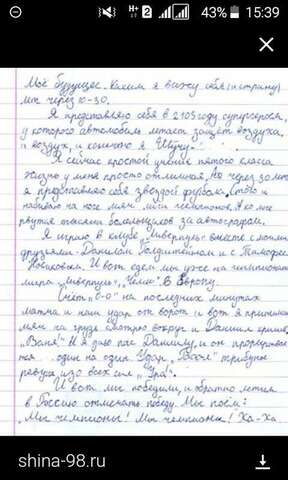 43% 15:39
Моё будущее. Каким я вижу себя (и страну)
лет через 10-30.
Я представляю себя в 2103 году супергероем,
у которого автомобиль летает
воздух, и конечно я
Я сейчас простой ученик пятого класса
жизнь у меня просто отличная, но через 30 лет
я представляю себя звездой футбола.
лиги чемпионов. А ко мне
рвутся тысячи болельщиков за автографом.
Я играю в клубе „Ливерпуль" вместе с моими
друзьями - Данилом и с Тимофеем
И вот едем мы уже на чемпионат
мира „Ливерпуль", „Челси" в Европу.
Счёт „0-0" на последних минутах
матча и наш удар от ворот и вот я принимаю
мяч на грудь смотрю вокруг и Даниил кричит
„Ваня". И я даю пас Данилу, и он
один на один. Удар, трибуны
ревут изо всех сил „Ура".
И вот мы победили, и обратно летим
в Россию отмечать победу. Мы поём:
„Мы чемпионы! Мы чемпионы! Ха-ха
shina-98.ru